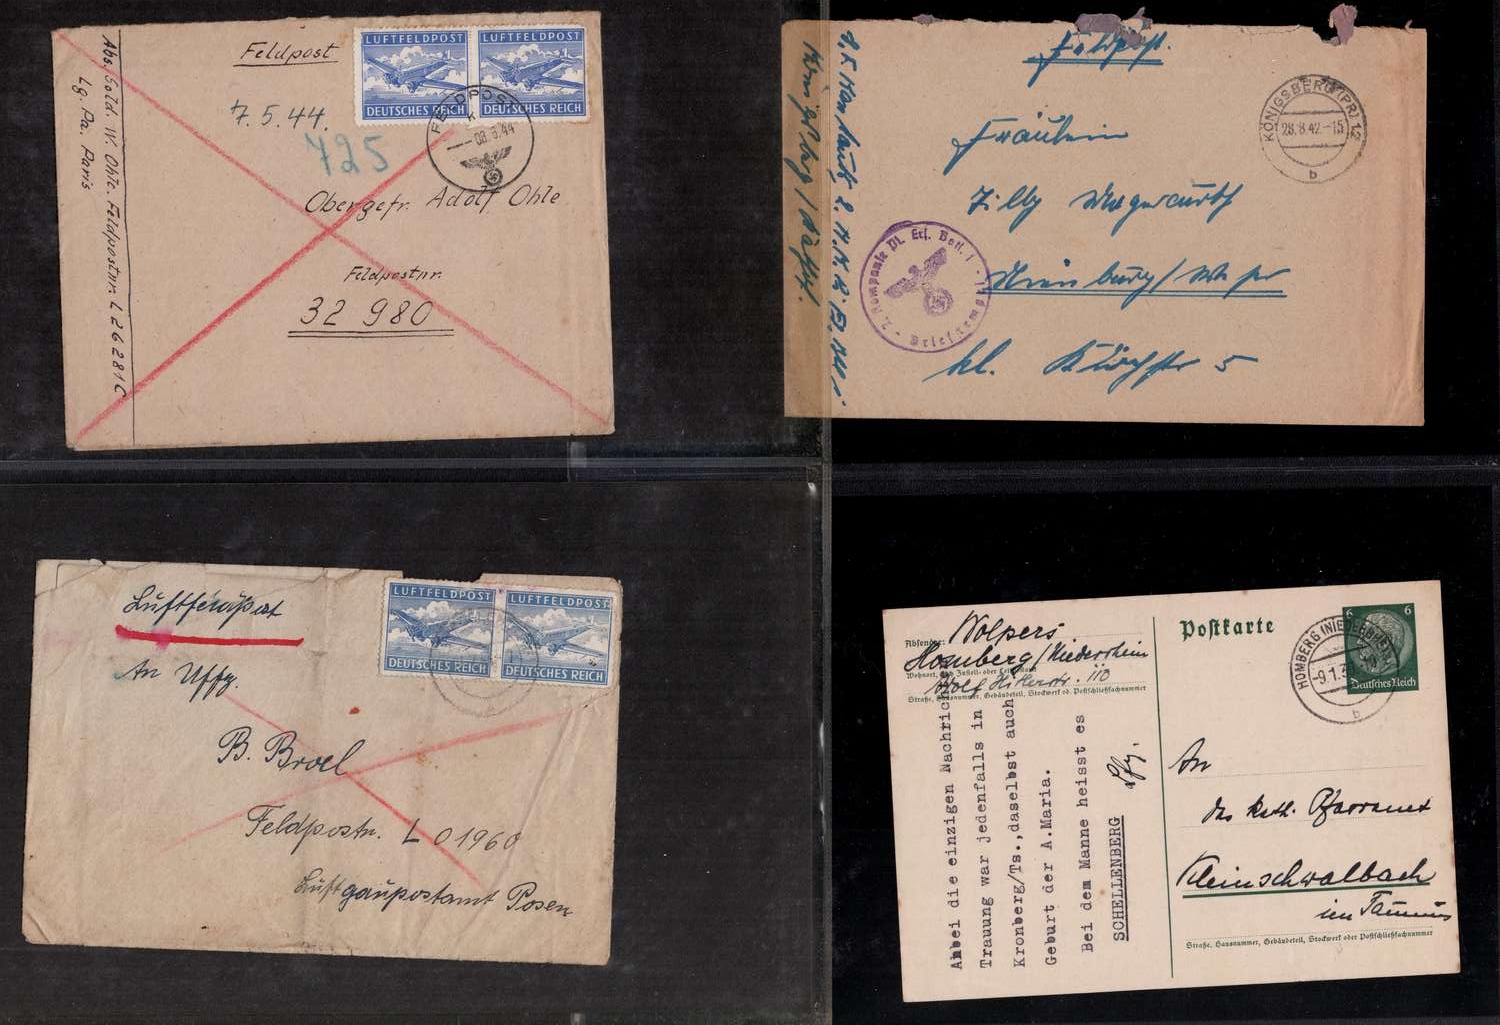 Feldpost
LUFTFELDPOST
DEUTSCHES REICH
LUFTFELDPOST
DEUTSCHES REICH
7.5.44.
725
FELDPOST
08.5.44
Obergefr. Adolf Ohle
Feldpostnr.
32 980
Abs. Sold. W. Ohle. Feldpostnr. L 26281 C
Lg. Pa. Paris
Feldpost.
KÖNIGSBERG (PR) 12
28.8.42-15
b
Fräulein
Nienburg/Weser
kl.
5
2. Kompanie
Briefstempel
Luftfeldpost
LUFTFELDPOST
DEUTSCHES REICH
LUFTFELDPOST
DEUTSCHES REICH
An Uffz.
B. Broel
Feldpostnr. L 01960
Luftgaupostamt Posen
Absender: Wolpers
Homberg/Niederrhein
Wohnort, auch Zustell- oder Leitpostamt
Adolf Hitlerstr. 110
Straße, Hausnummer, Gebäudeteil, Stockwerk od. Postschließfachnummer
Anbei die einzigen Nachrich
Trauung war jedenfalls in
Kronberg/Ts.,daselbst auch
Geburt der A.Maria.
Bei dem Manne heisst es
SCHELLENBERG
Postkarte
6 6
Deutsches Reich
HOMBERG (NIEDERRHEIN)
-9.1.3
b
An
das kath. Pfarramt
Kleinschwalbach
im Taunus
Straße, Hausnummer, Gebäudeteil, Stockwerk oder Postschließfachnummer